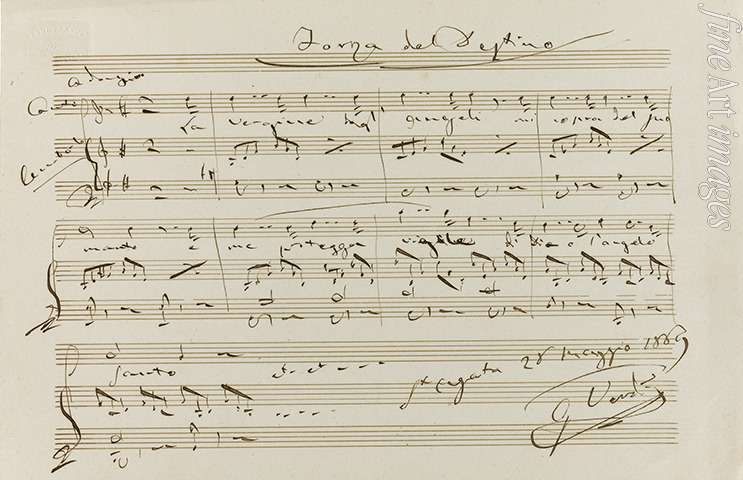 Forza del Destino
adagio
La vergine degl' angeli mi copra del suo
manto e me protegga vigile di Dio l'angelo
santo etc etc - - - -
St Agata 28 maggio 1869
G Verdi
fine Art images